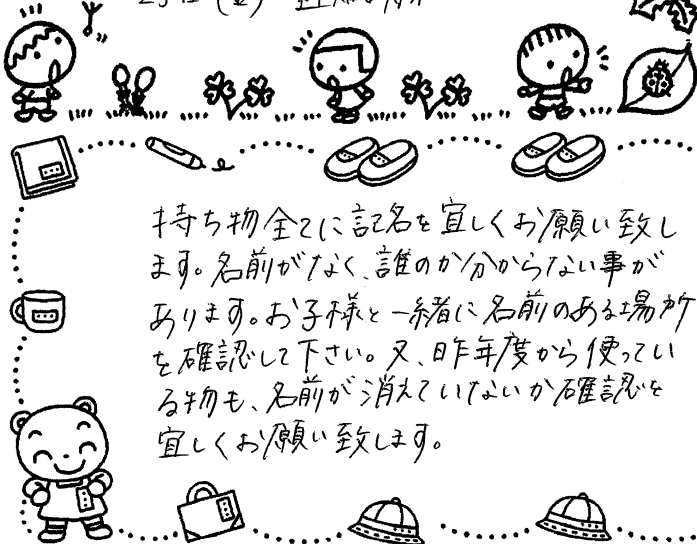 持ち物全てに記名を宜しくお願い致し
ます。名前がなく、誰のか分からない事が
あります。お子様と一緒に名前のある場所
を確認して下さい。又、昨年度から使ってい
る物も、名前が消えていないか確認を
宜しくお願い致します。